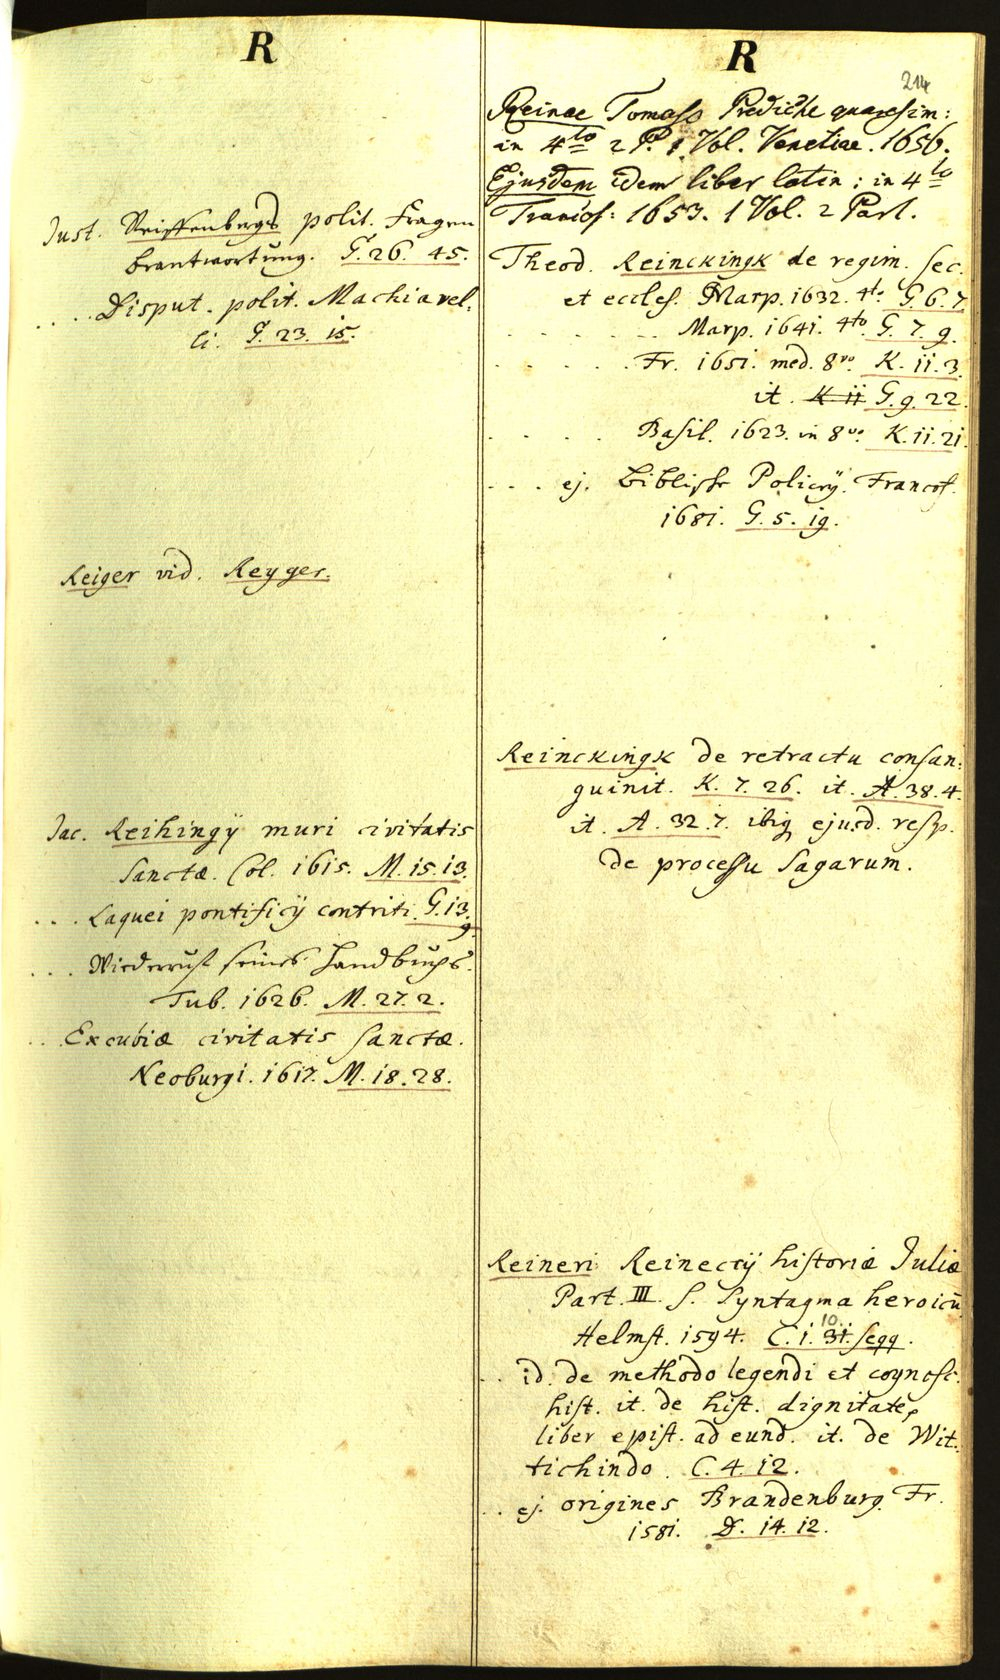 R
Just. Reiffenbergs polit. Fragen
beantwortung. G. 26. 45.
. . . . Disput. polit. Machiavel,
li. G. 23. 15.
Reiger vid. Reyger.
Jac. Reihingÿ muri civitatis
sanctæ. Col. 1615. M. 15. 13.
. . . Laquei pontificÿ contriti. G. 13.
9.
. . . Wiederruf seines Handbuchs.
Tub. 1626. M. 27. 2.
. . . Excubiæ civitatis sanctæ.
Neoburgi. 1617. M. 18. 28.
R
214
Reinae Tomaso Prediche quaresim:
in 4to 2 P. 1 Vol. Venetiae. 1656.
Ejusdem idem liber latin: in 4to
Francof: 1653. 1 Vol. 2 Part.
Theod. Reinckingk de regim. sec.
et eccles. Marp. 1632. 4to. G 6. 7.
. . . . . . Marp. 1641. 4to. G. 7. 9.
. . . . . Fr. 1651. med. 8vo. K. 11. 3.
it. K 11 G. 9. 22.
. . . . Basil. 1623. in 8vo. K. 11. 21.
. . . ej. Biblische Policey. Francof.
1681. G. 5. 19.
Reinckingk de retractu consan:
guinit. K. 7. 26. it. A. 38. 4.
it. A. 32. 7. ibiq ejusd. resp.
de processu sagarum.
Reineri Reineccÿ historiæ Juliæ
Part. III. s. syntagma heroicū
Helmst. 1594. C. 1. 31. 10. seqq.
. . id. de methodo legendi et cognosc.
hist. it. de hist. dignitate,
liber epist. ad eund. it. de Wit:
tichindo. C. 4. 12.
. . ej. origines Brandenburg. Fr.
1581. D. 14. 12.